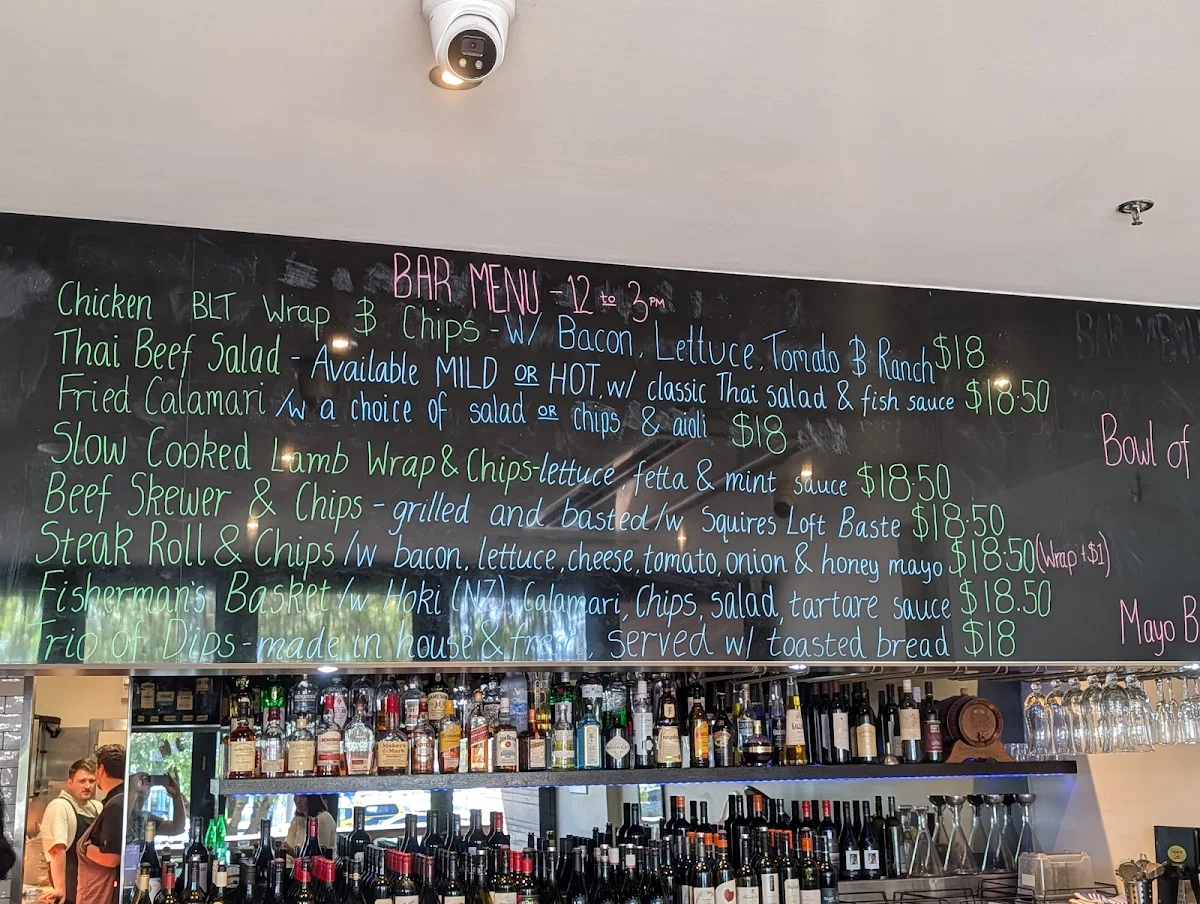 BAR MENU - 12 to 3PM
Chicken BLT Wrap & Chips - W/ Bacon, Lettuce, Tomato & Ranch $18
Thai Beef Salad - Available MILD OR HOT w/ classic Thai salad & fish sauce $18.50
Fried Calamari /w a choice of salad OR chips & aioli $18
Slow Cooked Lamb Wrap & Chips - lettuce, fetta & mint sauce $18.50
Beef Skewer & Chips - grilled and basted /w Squires Loft Baste $18.50
Steak Roll & Chips /w bacon, lettuce, cheese, tomato, onion & honey mayo $18.50 (Wrap +$1)
Fisherman's Basket /w Hoki (NZ), Calamari, Chips, salad, tartare sauce $18.50
Trio of Dips - made in house & fresh, served w/ toasted bread $18
BAR MENU
Bowl of
Mayo B
Maker's Mark